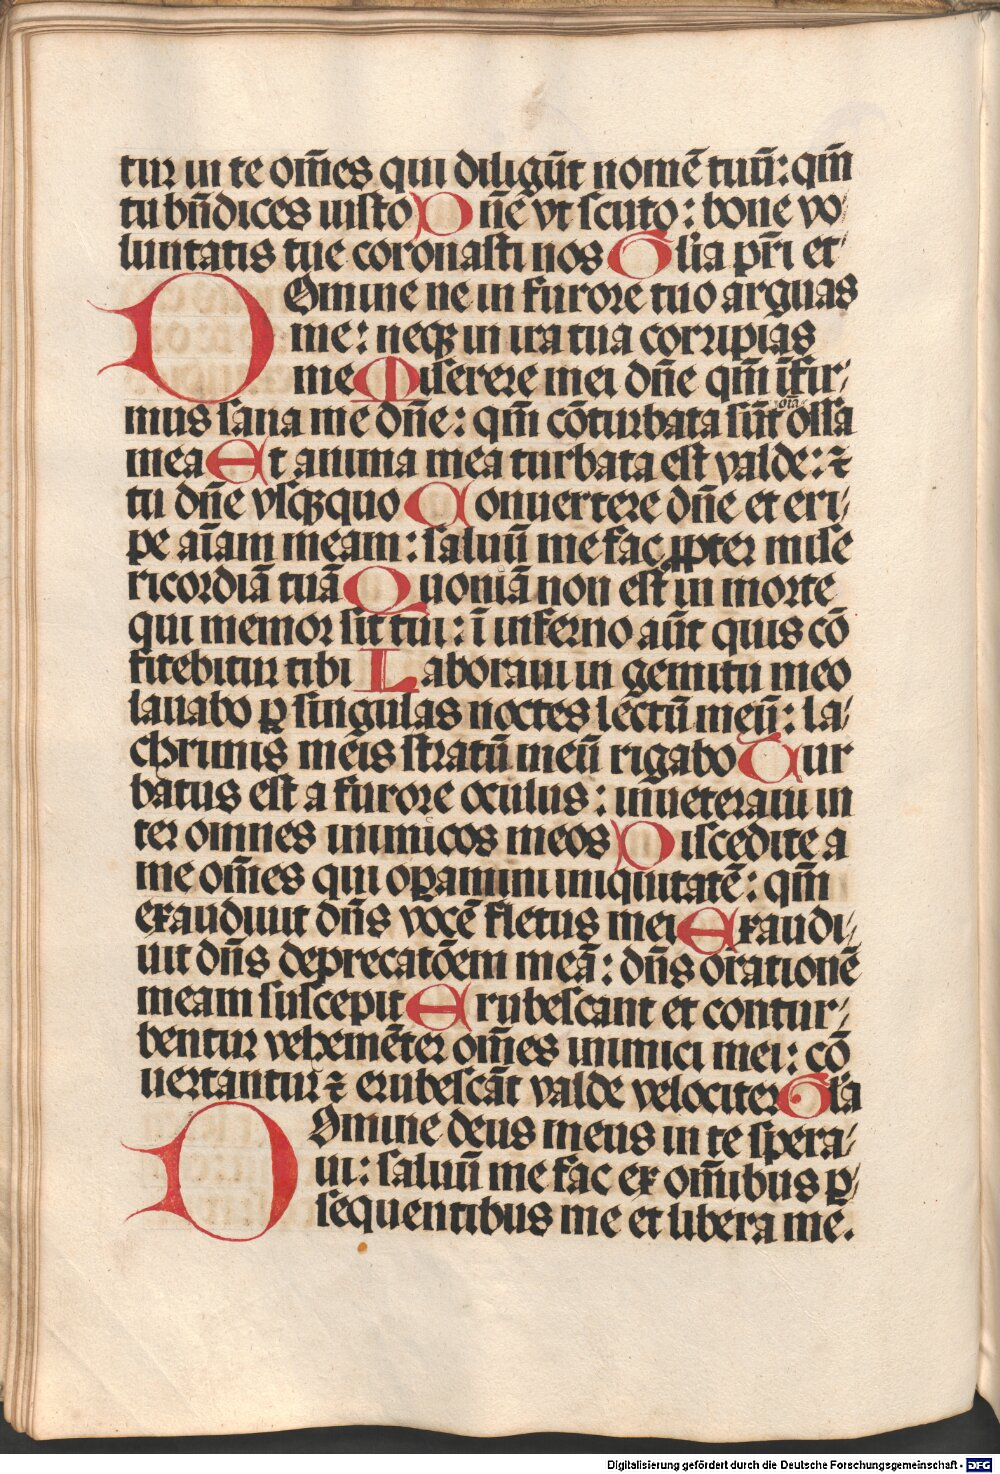 tur in te om̄es qui diligūt nomē tuū: qm̄
tu bn̄dices iusto Dn̄e vt scuto: bone vo⸗
luntatis tue coronasti nos Glia pr̄i et
DOmine ne in furore tuo arguas
me: neqꝫ in ira tua corripias
me Miserere mei dn̄e qm̄ īfir⸗
mus sana me dn̄e: qm̄ cōturbata sūt oīa ossa
mea Et anima mea turbata est valde: ⁊
tu dn̄e vsqꝫquo Conuertere dn̄e et eri⸗
pe aīam meam: saluū me fac ꝓpter mise
ricordiā tuā Quoniā non est in morte
qui memor sit tui: ī inferno aūt quis cō
fitebitur tibi Laboraui in gemitu meo
lauabo ꝑ singulas noctes lectū meū: la⸗
chrimis meis stratū meū rigabo Tur
batus est a furore oculus: inueteraui in
ter omnes inimicos meos Discedite a
me om̄es qui oꝑamini iniquitatē: qm̄
exaudiuit dn̄s vocē fletus mei Exaudi⸗
uit dn̄s deprecatōem meā: dn̄s orationē
meam suscepit Erubescant et contur⸗
bentur vehemēter om̄es inimici mei: cō
uertantur ⁊ erubescāt valde velociter Gl̄a
DOmine deus meus in te spera⸗
ui: saluū me fac ex om̄ibus ꝑ⸗
sequentibus me et libera me.
Digitalisierung gefördert durch die Deutsche Forschungsgemeinschaft - DFG